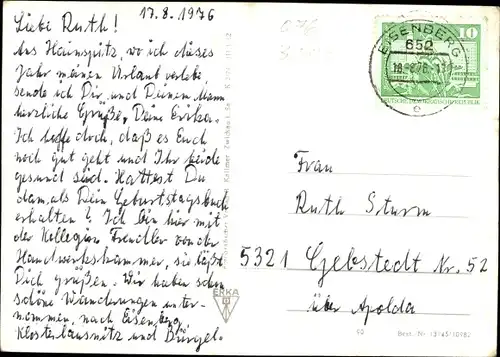 17.8.1976
Liebe Ruth!
Aus Hainspitz, wo ich dieses
Jahr meinen Urlaub verlebe,
sende ich Dir und Deinem Mann
herzliche Grüße, Deine Erika.
Ich hoffe doch, daß es Euch
noch gut geht und Ihr beide
gesund seid. Hattest Du
damals Dein Geburtstagsbuch
erhalten? Ich bin hier mit
der Kollegin Trendler von der
Handwerkskammer, sie läßt
Dich grüßen. Wir haben schon
schöne Wanderungen unter-
nommen, nach Eisenberg,
Klosterlausnitz und Bürgel.
EISENBERG
652
18.-8.76
e
10
DEUTSCHE DEMOKRATISCHE REPUBLIK
Frau
Ruth Sturm
5321 Gebstedt Nr. 52
über Apolda
ERKA
Best.-Nr.